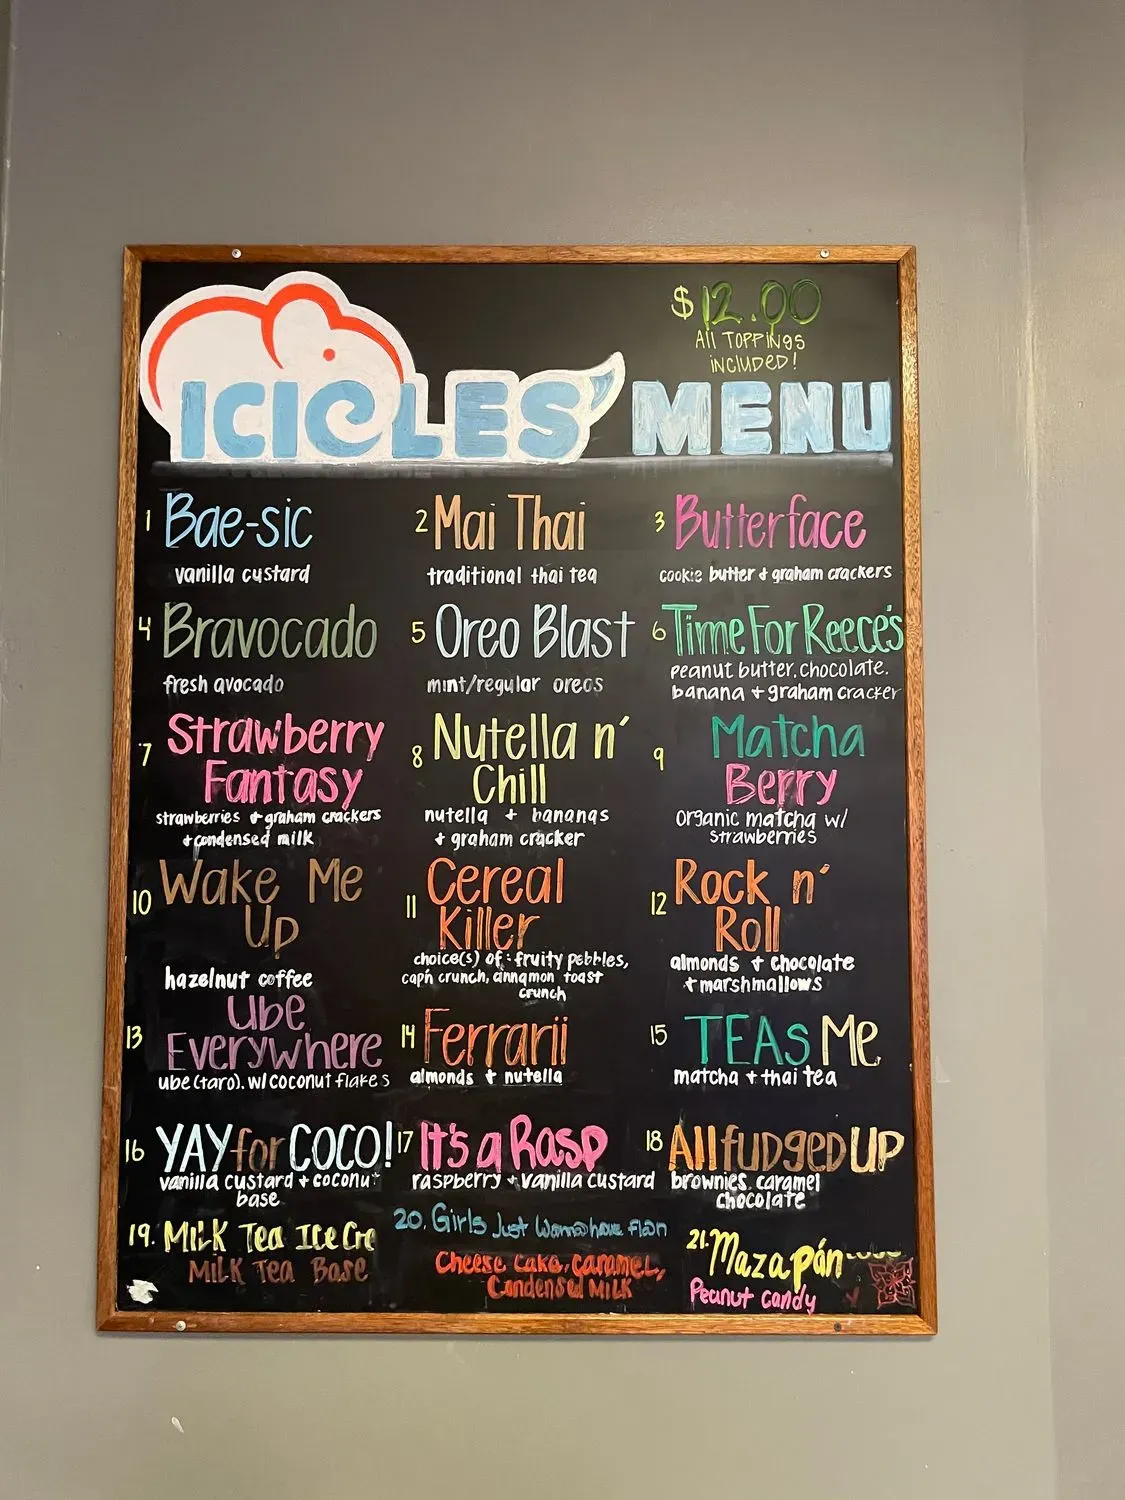 $12.00
All TOPPINGS
INCLUDED!
ICICLES' MENU
1 Bae-sic
vanilla custard
2 Mai Thai
traditional thai tea
3 Butterface
cookie butter + graham crackers
4 Bravocado
fresh avocado
5 Oreo Blast
mint/regular oreos
6 Time For Reece's
peanut butter, chocolate,
banana + graham cracker
7 Strawberry
Fantasy
strawberries + graham crackers
+ condensed milk
8 Nutella n'
Chill
nutella + bananas
+ graham cracker
9 Matcha
Berry
organic matcha w/
strawberries
10 Wake Me
Up
hazelnut coffee
11 Cereal
Killer
choice(s) of: fruity pebbles,
cap'n crunch, cinnamon toast
crunch
12 Rock n'
Roll
almonds + chocolate
+ marshmallows
13 Ube
Everywhere
ube (taro). w/ coconut flakes
14 Ferrarii
almonds + nutella
15 TEAS Me
matcha + thai tea
16 YAY for COCO!
vanilla custard + coconut
base
17 It's a Rasp
raspberry + vanilla custard
18 All fudged UP
brownies, caramel
chocolate
19. MILK Tea Ice Cre
MILK Tea Base
20. Girls Just Wanna have flan
Cheese Cake, Caramel,
Condensed MILK
21. Mazapán
Peanut candy